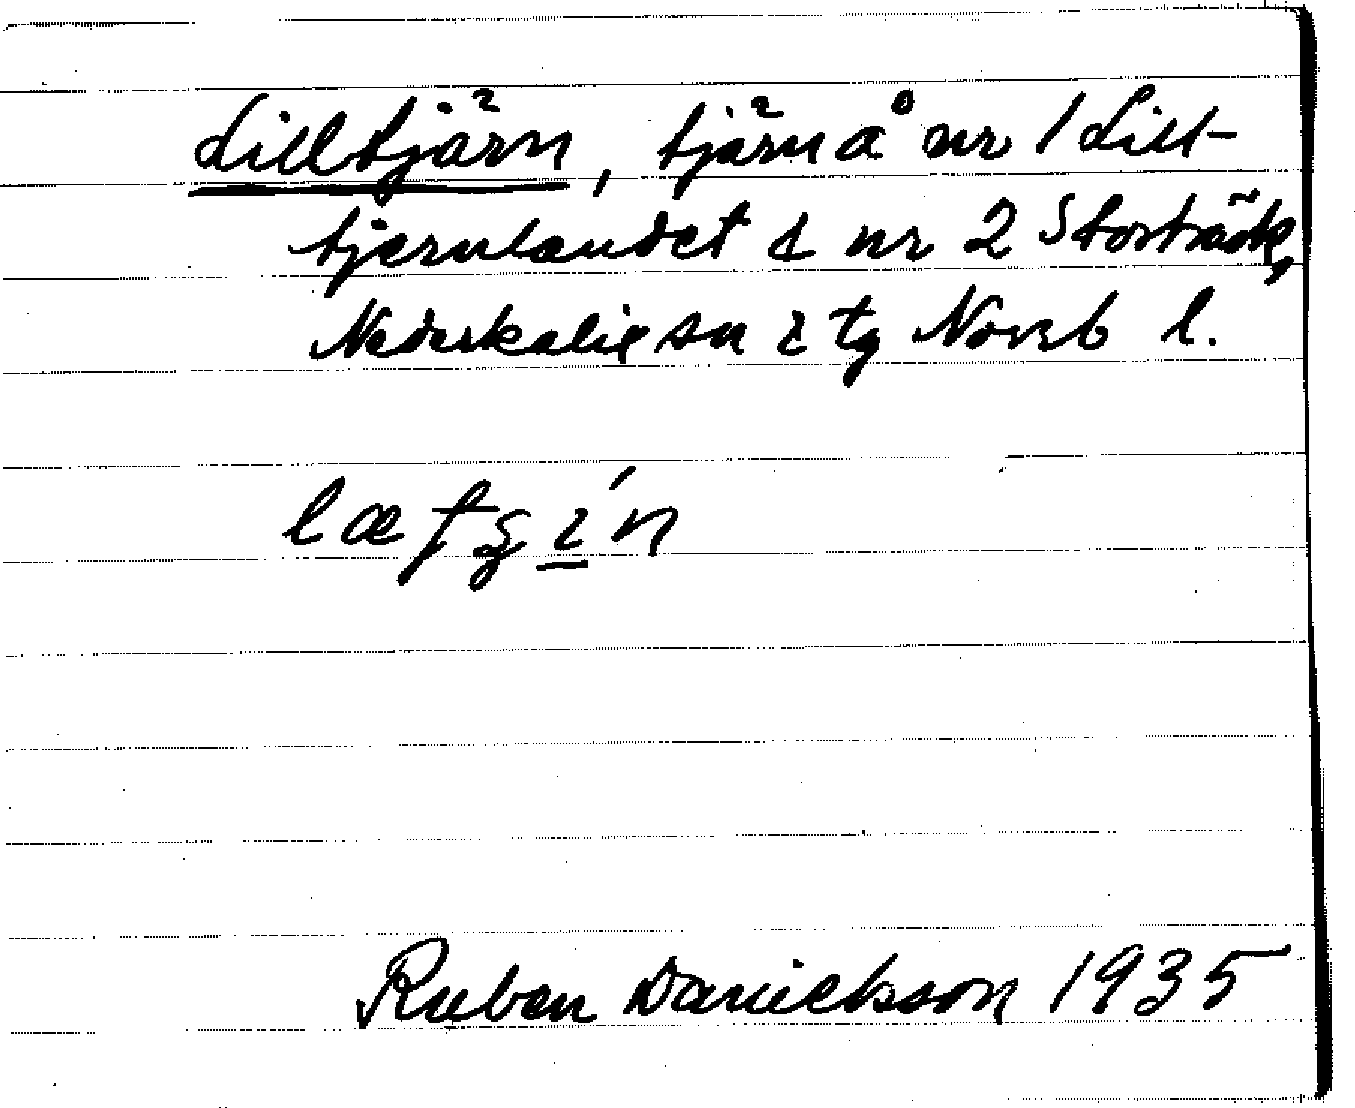 Lilltjärn, tjärn å nr 1 Lill-
tjärnlandet & nr 2 Storträsk,
Nederkalix sn o tg Norrb l.
Ruben Danielsson 1935